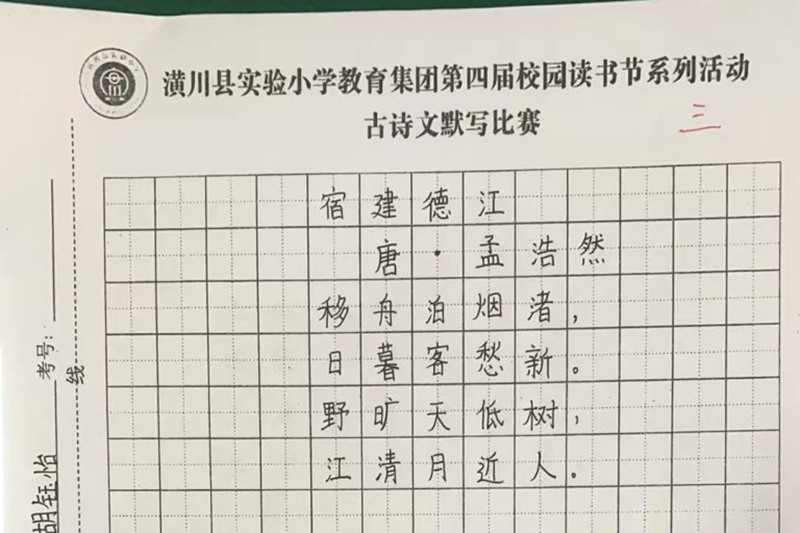 潢川县实验小学教育集团第四届校园读书节系列活动
古诗文默写比赛
三
宿建德江
唐·孟浩然
移舟泊烟渚，
日暮客愁新。
野旷天低树，
江清月近人。
考号：
线
胡钰怡